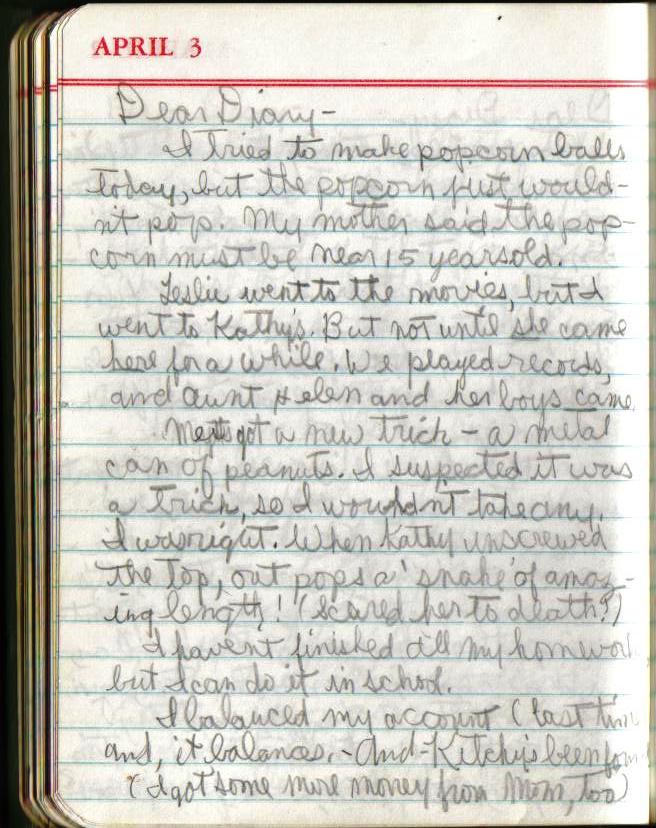 APRIL 3
Dear Diary-
I tried to make popcorn balls
today, but the popcorn just would-
n't pop. My mother said the pop-
corn must be near 15 years old.
Leslie went to the movies, but I
went to Kathy's. But not until she came
here for a while. We played records,
and aunt Helen and her boys came.
got a new trick - a metal
can of peanuts. I suspected it was
a trick, so I wouldn't take any.
I was right. When Kathy unscrewed
the top, out pops a 'snake' of amaz-
ing length! (scared her to death!)
I haven't finished all my homewor
but I can do it in school.
I balanced my account (last tim
and, it balances. - And - Kitchy's been foun
(I got some more money from Mom, too)